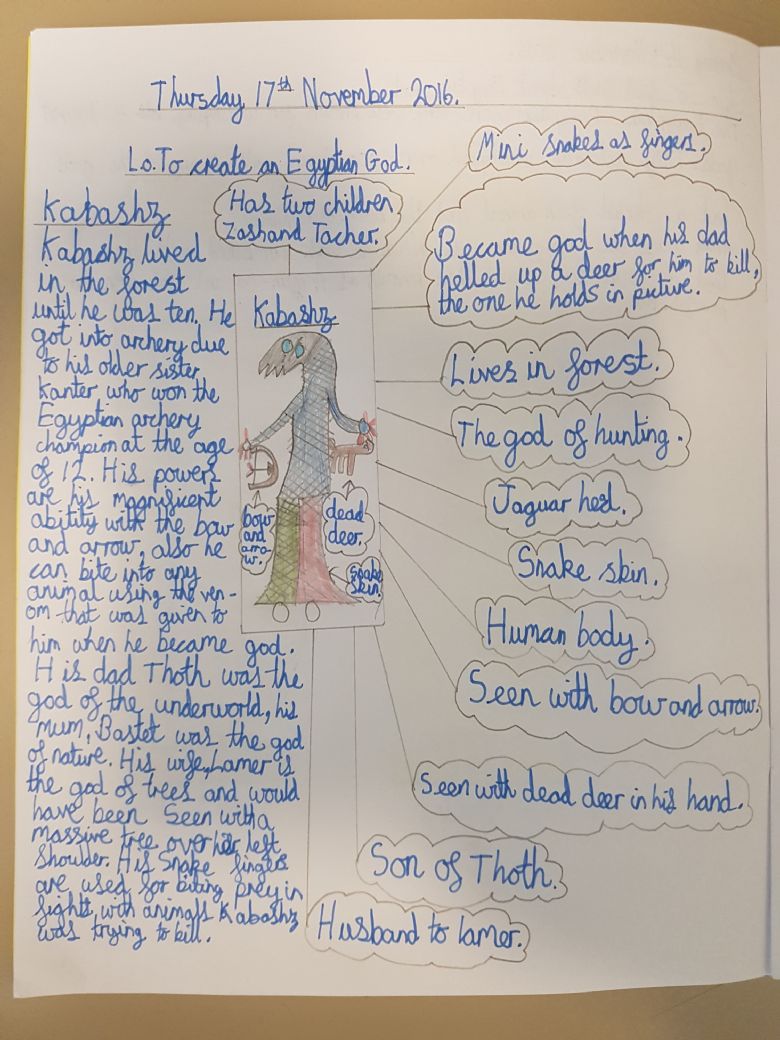 Thursday 17th November 2016.
L.o. To create an Egyptian God.
Kabashz
Kabashz lived
in the forest
until he was ten. He
got into archery due
to his older sister
Kanter who won the
Egyptian archery
champion at the age
of 12. His powers
are his magnificent
ability with the bow
and arrow, also he
can bite into any
animal using the ven-
om that was given to
him when he became god.
His dad Thoth was the
god of the underworld, his
mum, Bastet was the god
of nature. His wife, Lamer is
the god of trees and would
have been seen with a
massive tree over her left
shoulder. His snake fingers
are used for biting prey in
fights, with animals Kabashz
was trying to kill.
Has two children
Zash and Tacher.
Kabashz
bow
and
arro
w.
dead
deer.
snake
skin.
Mini snakes as fingers.
Became god when his dad
helled up a deer for him to kill,
the one he holds in picture.
Lives in forest.
The god of hunting.
Jaguar hed.
Snake skin.
Human body.
Seen with bow and arrow.
Seen with dead deer in his hand.
Son of Thoth.
Husband to lamer.